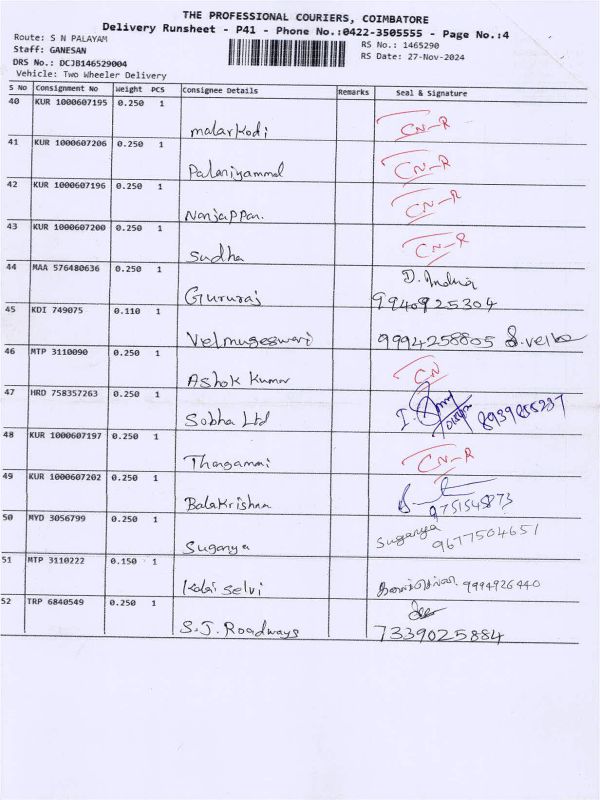 THE PROFESSIONAL COURIERS, COIMBATORE
Delivery Runsheet - P41 - Phone No.:0422-3505555 - Page No.:4
Route: S N PALAYAM
RS No.: 1465290
Staff: GANESAN
RS Date: 27-Nov-2024
DRS No.: DCJB146529004
Vehicle: Two Wheeler Delivery
S No Consignment No Weight PCS Consignee Details Remarks Seal & Signature
40 KUR 1000607195 0.250 1
malarkodi CN-R
41 KUR 1000607206 0.250 1
Palaniyammal CN-R
42 KUR 1000607196 0.250 1
Nanjappan. CN-R
43 KUR 1000607200 0.250 1
Sudha CN-R
44 MAA 576480636 0.250 1
Gururaj 9940925304
45 KDI 749075 0.110 1
Velmugeswari 9994258805 S.vel
46 MTP 3110090 0.250 1
Ashok Kumar CN
47 HRD 758357263 0.250 1
Sobha Ltd
48 KUR 1000607197 0.250 1
Thangamani CN-R
49 KUR 1000607202 0.250 1
BalaKrishnan 9751548873
50 MYD 3056799 0.250 1
Suganya Suganya 9677504651
51 MTP 3110222 0.150 1
Kalai Selvi 9994926440
52 TRP 6840549 0.250 1
S.J. Roadways 7339025884